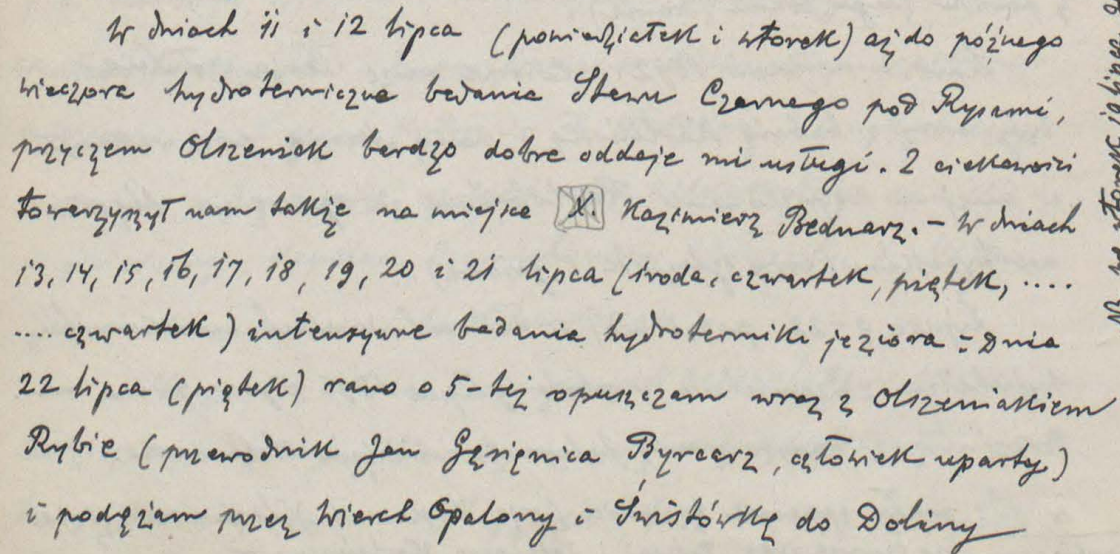 W dniach 11 i 12 lipca (poniedziałek i wtorek) aż do późnego
wieczora hydrotermiczne badania Stawu Czarnego pod Rysami,
przyczem Olszeniak bardzo dobre oddaje mi usługi. Z ciekawości
towarzyszył nam także na miejsce X. Kazimierz Bednarz. – W dniach
13, 14, 15, 16, 17, 18, 19, 20 i 21 lipca (środa, czwartek, piątek, ....
.... czwartek) intensywne badania hydrotermiki jeziora – Dnia
22 lipca (piątek) rano o 5-tej opuszczam wraz z Olszeniakiem
Rybie (przewodnik Jan Gąsienica Byrcarz, człowiek uparty)
i podążam przez Wierch Opalony i Świstówkę do Doliny